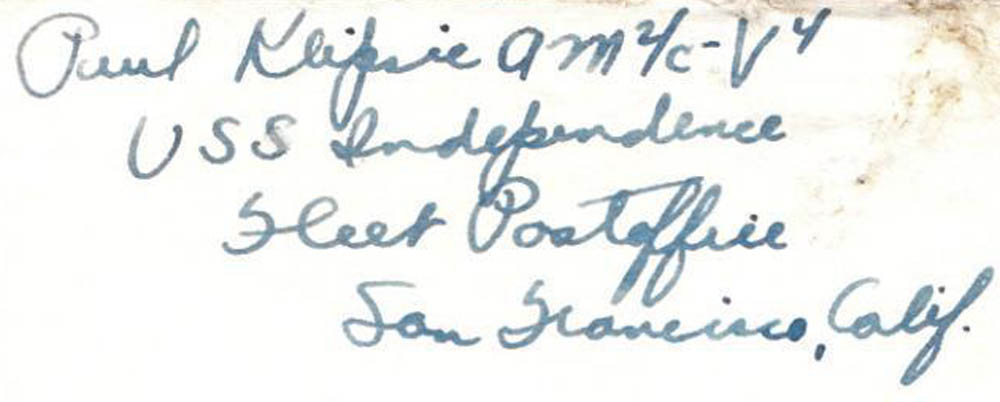 Paul Klipsie AM2/c-V4
USS Independence
Fleet Postoffice
San Francisco, Calif.